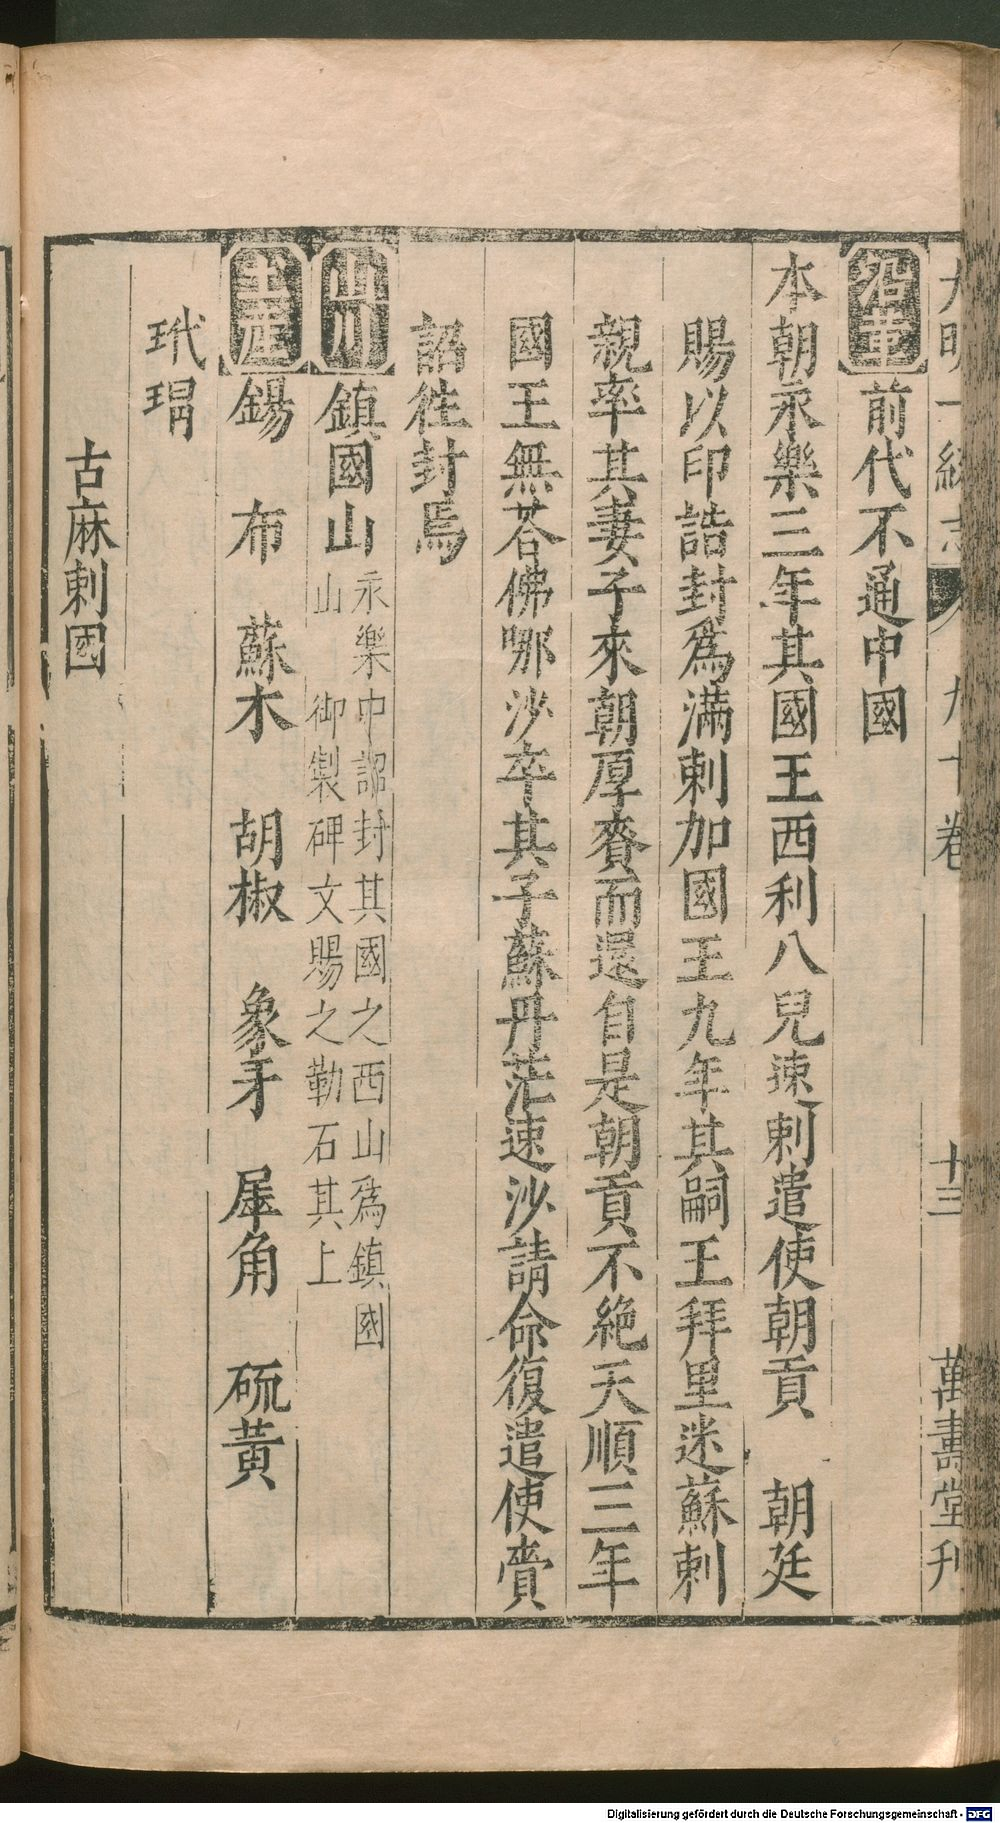 大明一統志 九十卷 十三 萬壽堂刊
沿革 前代不通中國
本朝永樂三年其國王西利八兒速剌遣使朝貢 朝廷
賜以印誥封爲滿剌加國王九年其嗣王拜里迷蘇剌
親率其妻子來朝厚賚而還自是朝貢不絶天順三年
國王無荅佛哪沙卒其子蘇丹茫速沙請命復遣使賫
詔徃封焉
山川 鎮國山 永樂中詔封其國之西山爲鎮國
山 御製碑文賜之勒石其上
土產 錫 布 蘇木 胡椒 象牙 犀角 硫黄
玳瑁
古麻剌國
Digitalisierung gefördert durch die Deutsche Forschungsgemeinschaft - DFG